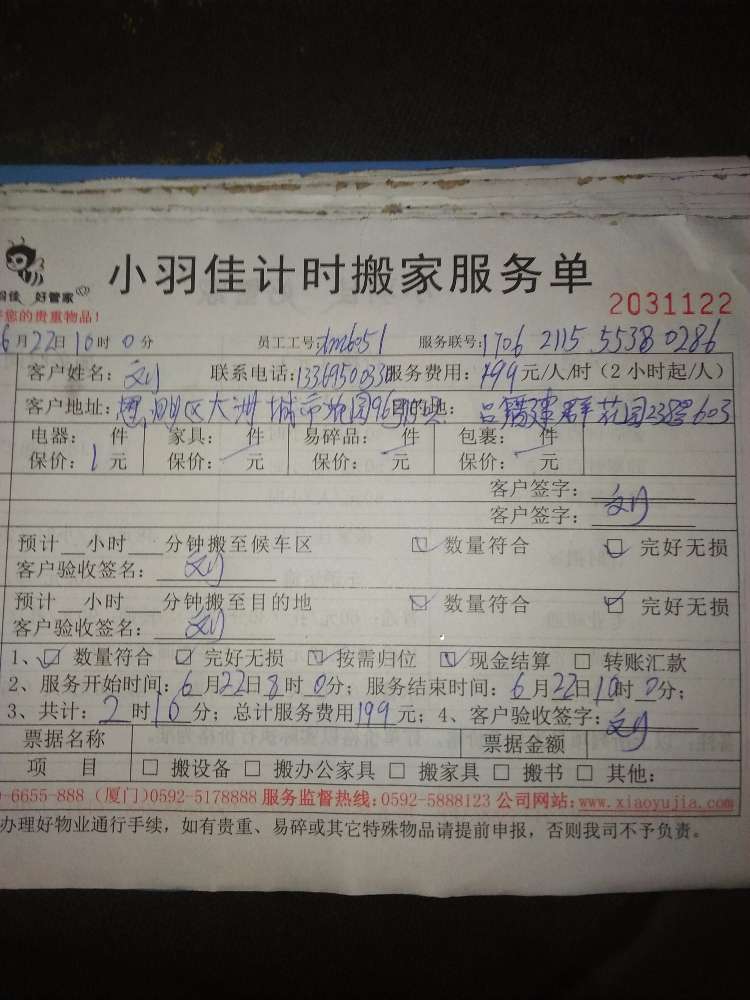 小羽佳计时搬家服务单
佳 好管家
2031122
您的贵重物品!
6月22日10时0分 员工工号: 服务联号:1706 2115 5538 0286
客户姓名: 联系电话: 服务费用:199元/人/时(2小时起/人)
客户地址: 区大洲城市花园96 的地: 建群花园238号603
电器: 件 家具: 件 易碎品: 件 包裹: 件
保价:1元 保价:一元 保价:一元 保价:一元
客户签字:
客户签字:
预计__小时___分钟搬至候车区 ☑ 数量符合 ☑ 完好无损
客户验收签名:
预计__小时___分钟搬至目的地 ☑ 数量符合 ☑ 完好无损
客户验收签名:
1、☑ 数量符合 ☑ 完好无损 ☑ 按需归位 ☑ 现金结算 □ 转账汇款
2、服务开始时间:6月22日8时0分;服务结束时间:6月22日10时0分;
3、共计:2时0分;总计服务费用199元;4、客户验收签字:
票据名称 票据金额
项 目 □ 搬设备 □ 搬办公家具 □ 搬家具 □ 搬书 □ 其他:
-6655-888 (厦门)0592-5178888 服务监督热线:0592-5888123 公司网站:www.xiaoyujia.com
办理好物业通行手续,如有贵重、易碎或其它特殊物品请提前申报,否则我司不予负责。